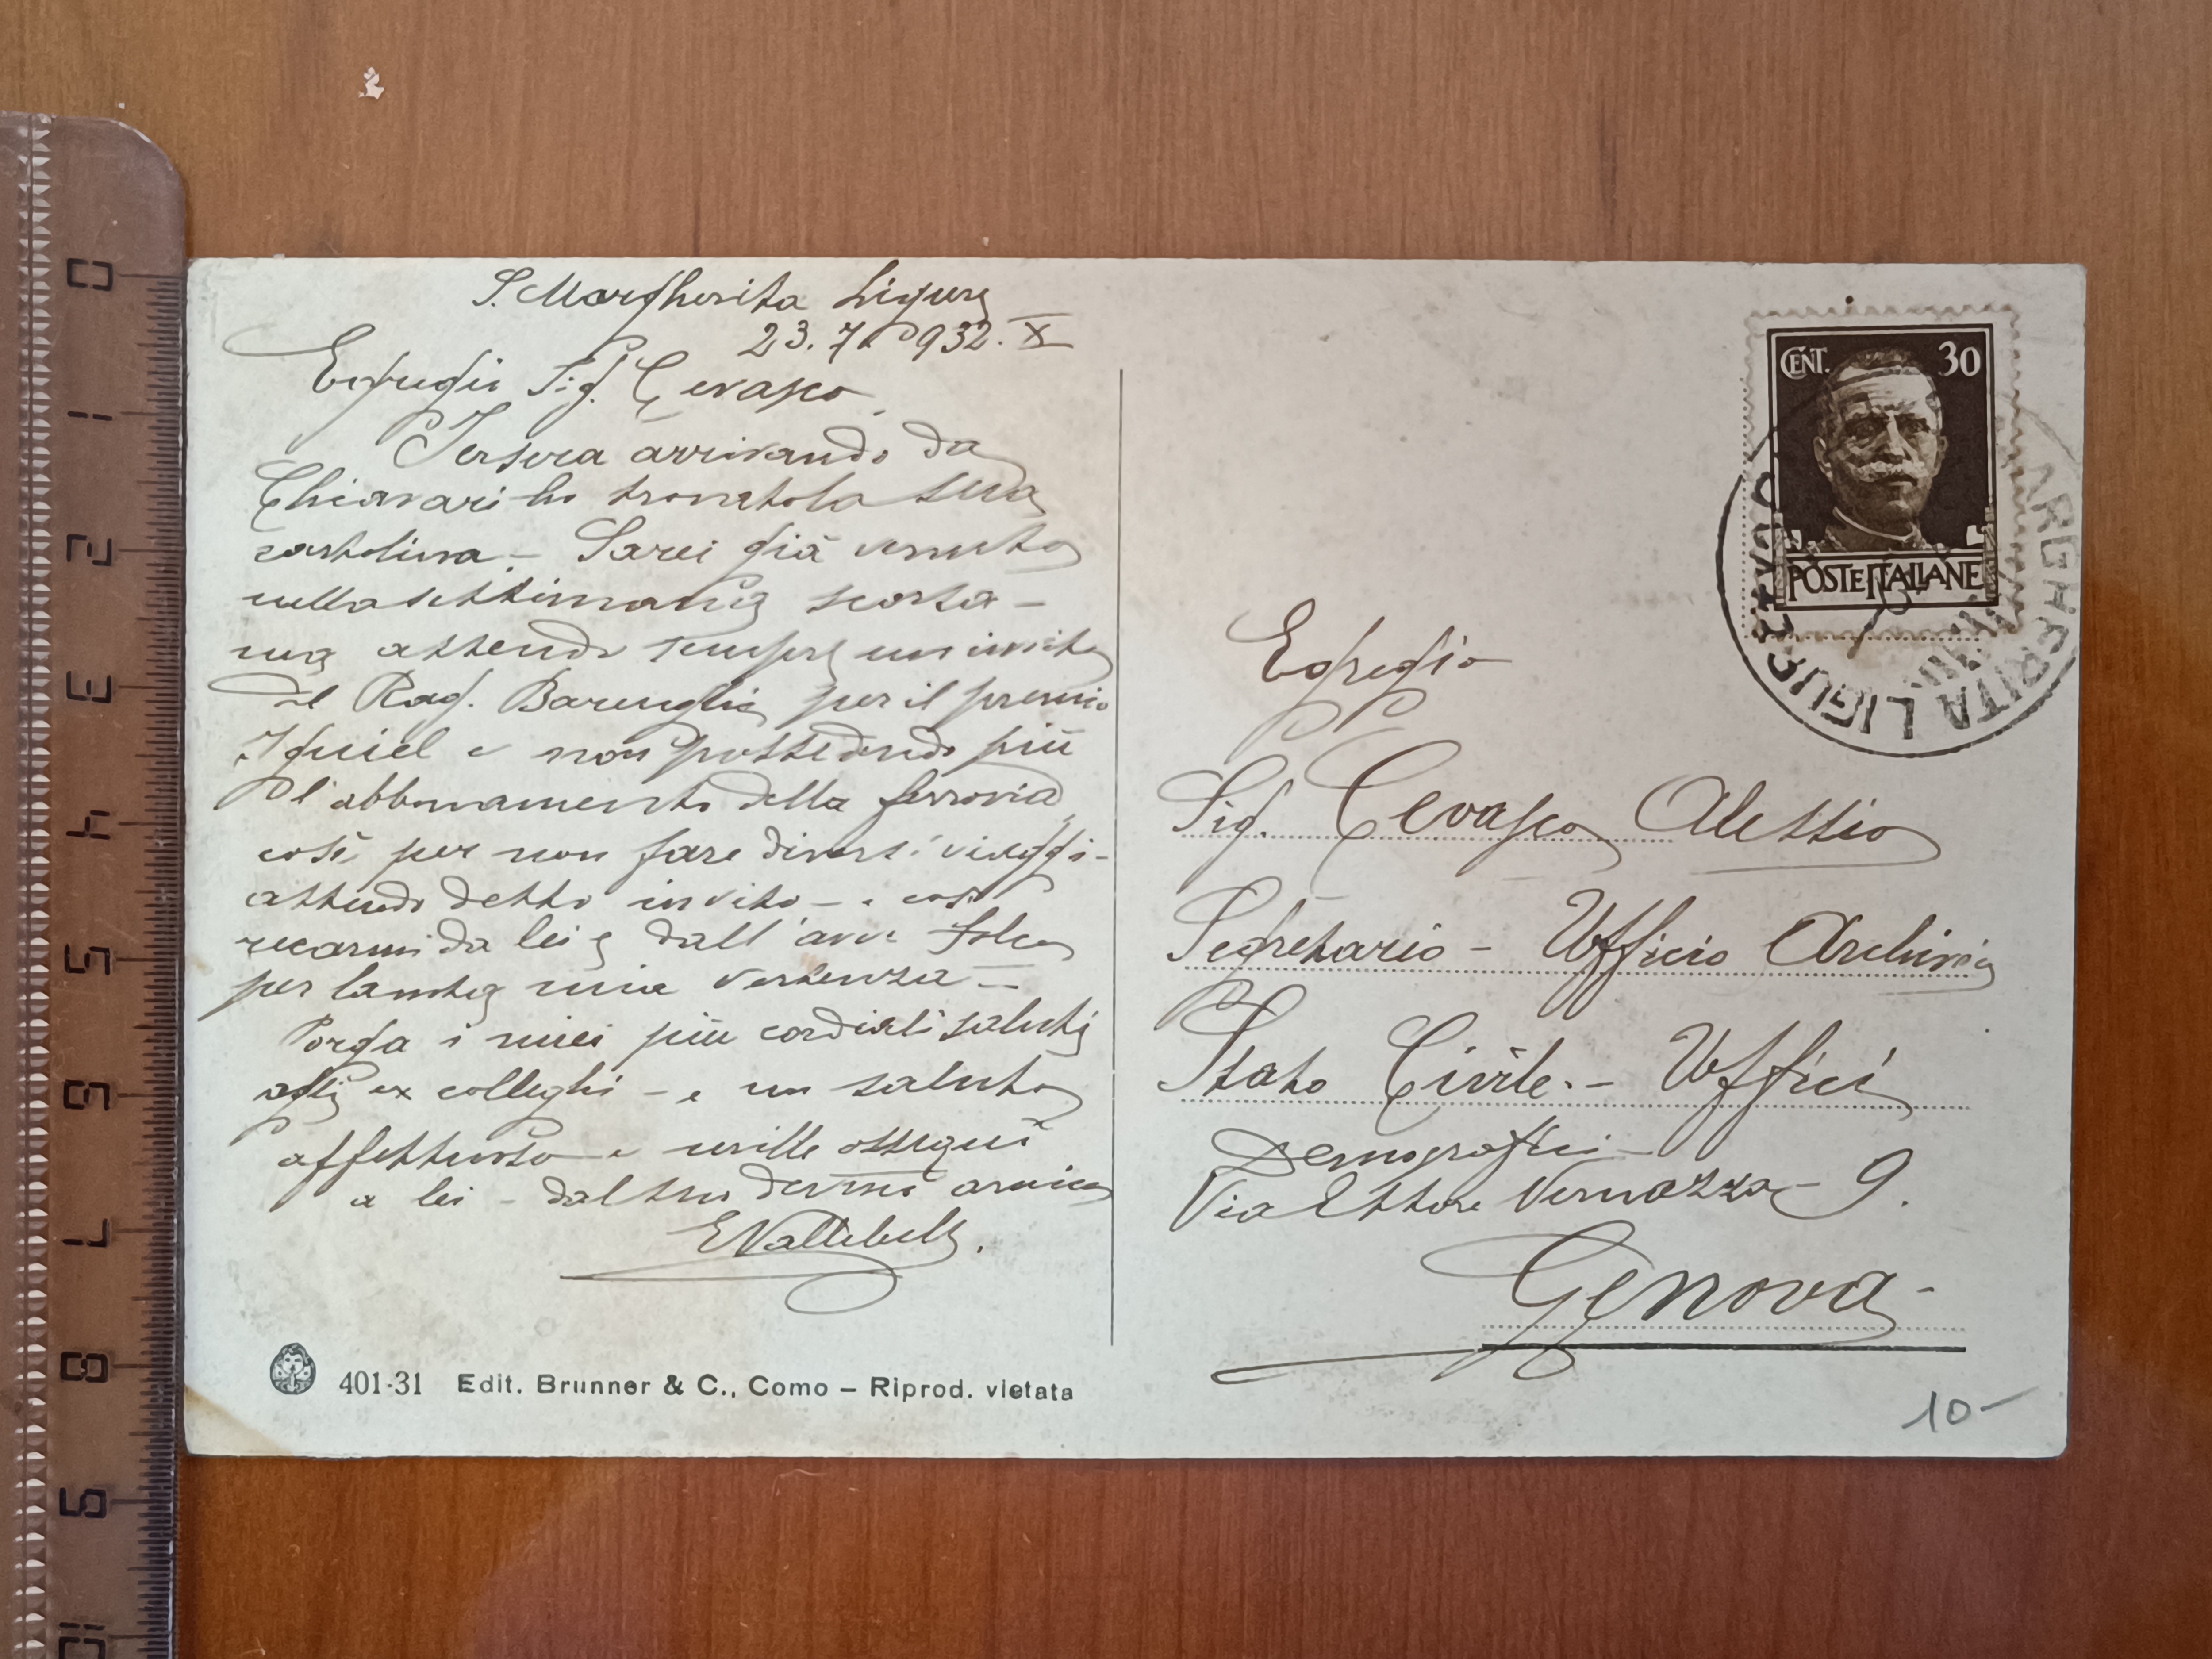 S. Margherita Ligure
23. 7. 932. X
Egregio Sig. Cevasco
Iersera arrivando da
Chiavari ho trovato la sua
cartolina. - Sarei già venuto
nella settimana scorsa -
ma attendo sempre un invito
del Rag. per il premio
e non possedendo più
l'abbonamento della ferrovia
così per non fare diversi viaggi -
attendo detto invito - e così
recarmi da lei e dall'avv.
per la nota mia vertenza -
Porga i miei più cordiali saluti
agli ex colleghi - e un saluto
affettuoso e mille ossequi
a lei - dal suo dev.mo amico
CENT. 30
POSTE ITALIANE
MARGHERITA LIGURE
Egregio
Sig. Cevasco Alessio
Segretario - Ufficio Archivio
Stato Civile. - Uffici
Demografici -
Via Ettore Vernazza - 9.
Genova -
401-31 Edit. Brunner & C., Como – Riprod. vietata
10-
0
1
2
3
4
5
6
7
8
9
10